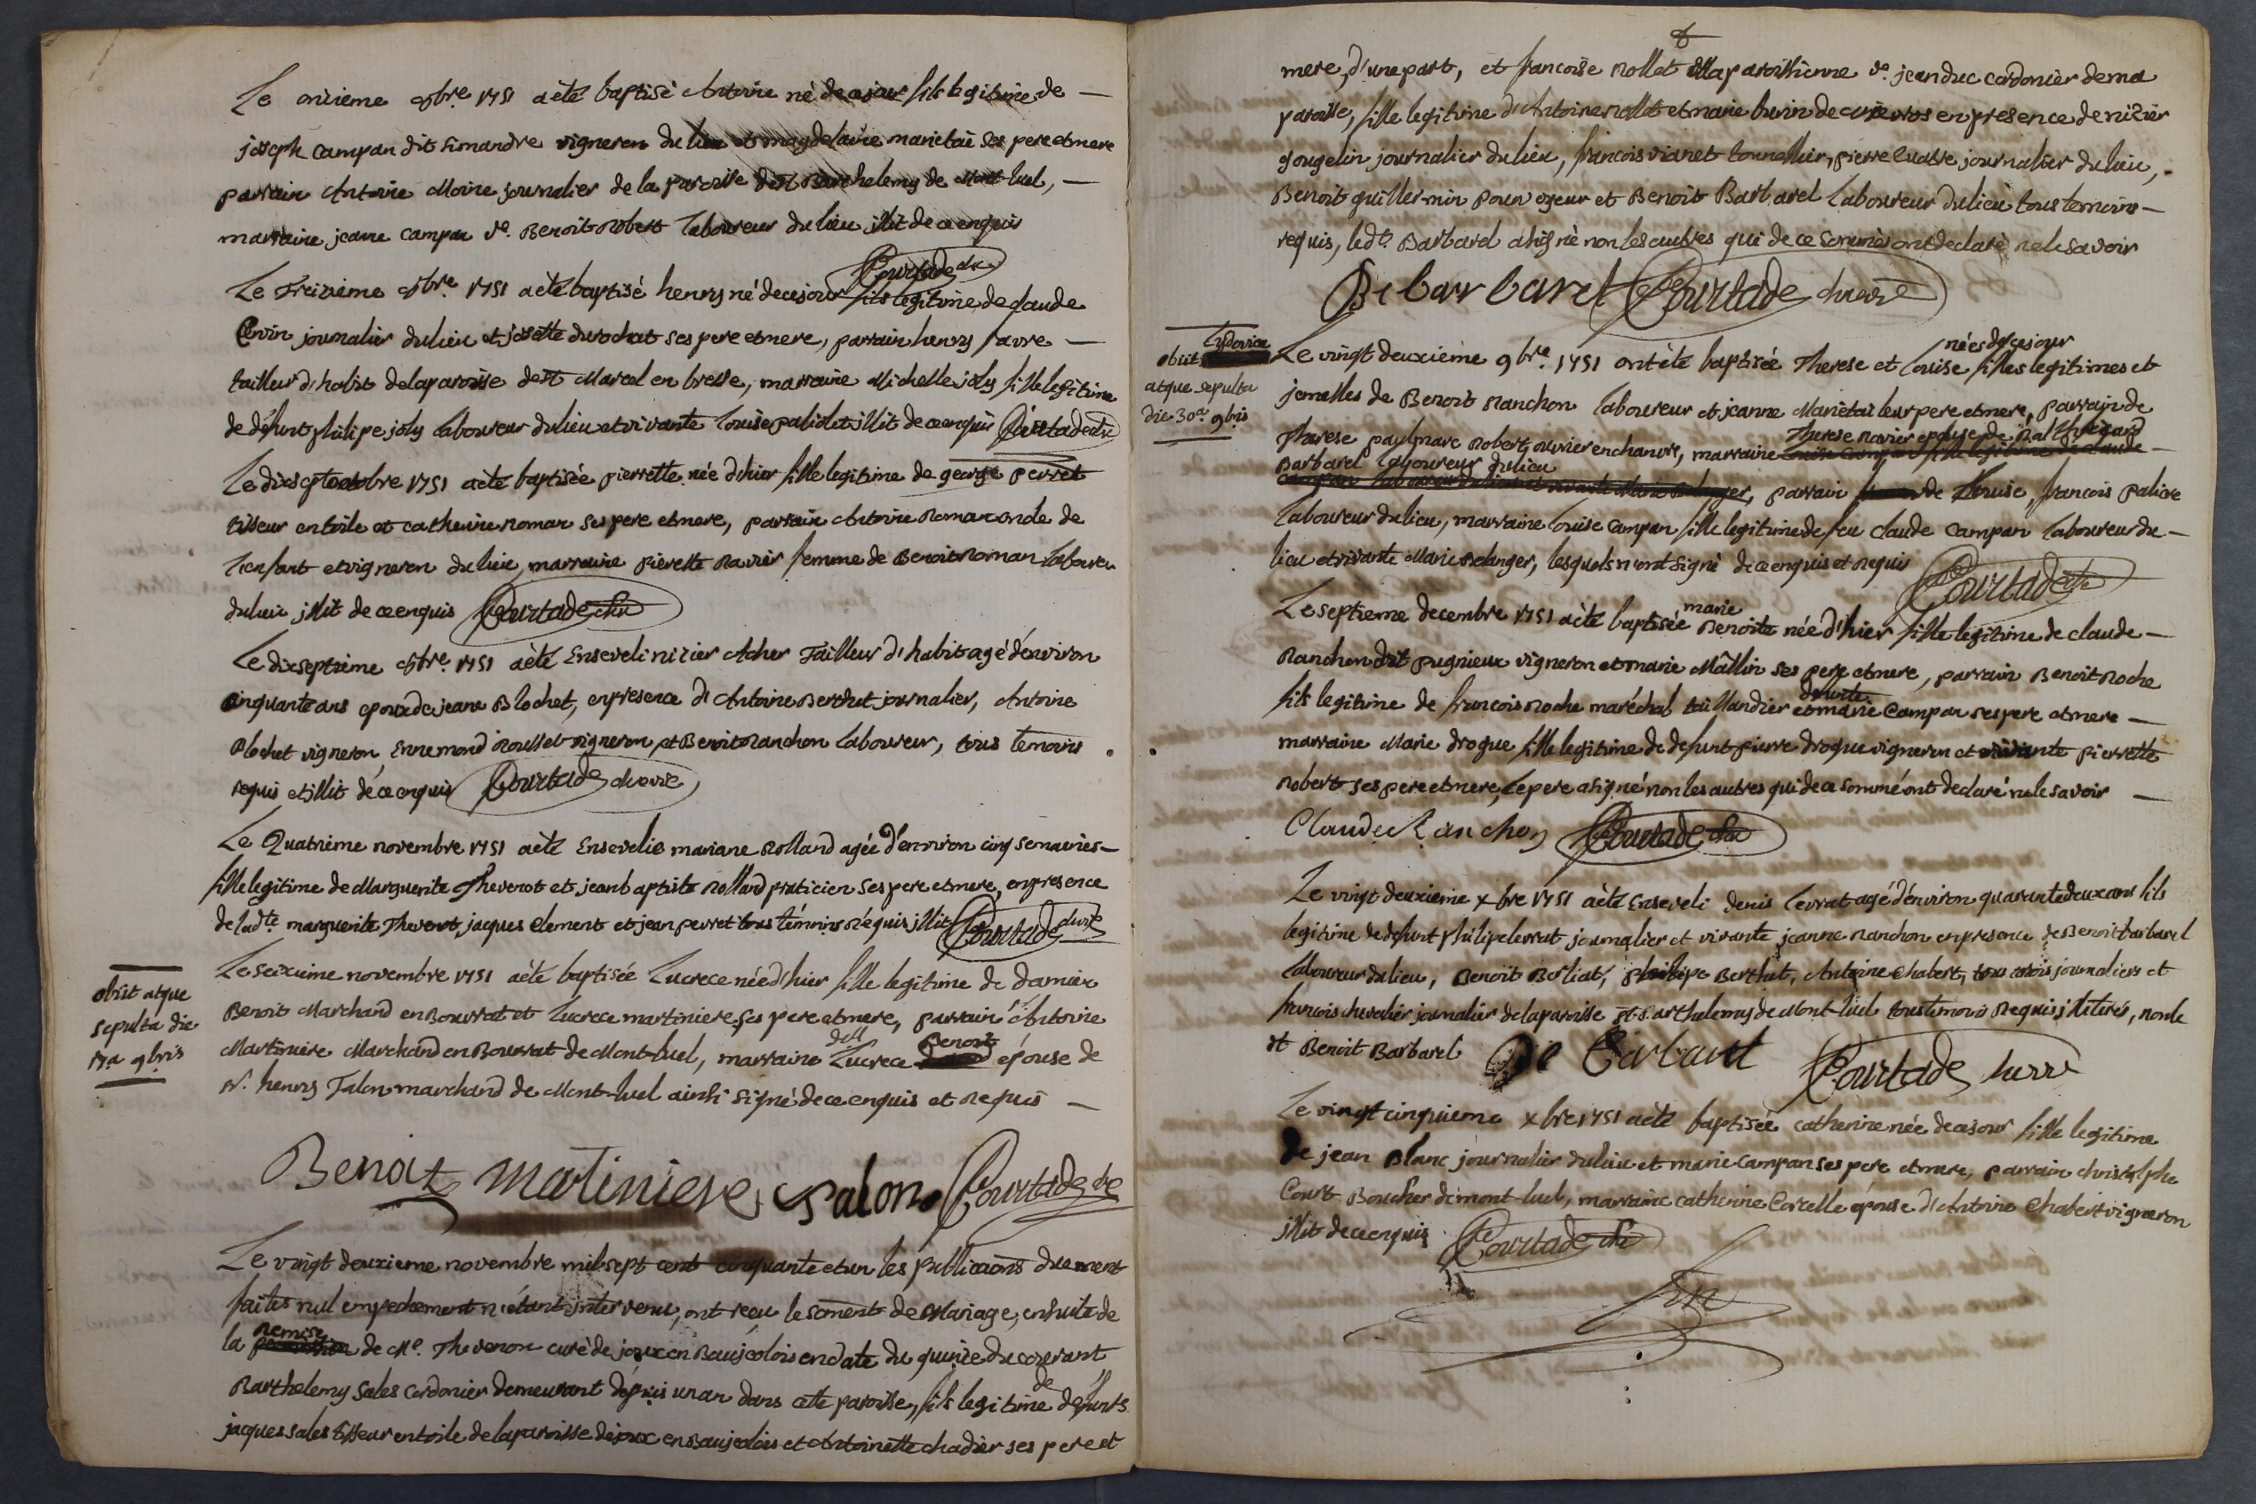 Le onzieme 8bre. 1751 a été baptisé Antoine né de ce jour fils legitime de —
joseph campan dit simandre vigneron du lieu et magdelaine marietai ses pere et mere
parrain Antoine Moine journalier de la paroisse de st Barthelemy de Mont-luel, —
marraine jeane campan ve. Benoit Robert laboureur du lieu illit de ce enquis
Courtade curé
Le Treizieme 8bre. 1751 a été baptisé henry né de ce jour fils legitime de claude
journalier du lieu et josette durochat ses pere et mere, parrain henry favre —
tailleur d'habit de la paroisse de st Marcel en bresse, marraine Michelle joly fille legitime
de défunt philipe joly laboureur du lieu et vivante Louise paliolet illit de ce enquis Courtade curé
Le dixsept octobre 1751 a été baptisée pierrette née d'hier fille legitime de george perret
tisseur en toile et catherine roman ses pere et mere, parrain Antoine Roman oncle de
l'enfant et vigneron du lieu, marraine pierette Ravier femme de Benoit Roman laboureur
du lieu illit de ce enquis Courtade curé
Le dixseptieme 8bre. 1751 a été Enseveli nizier Acher Tailleur d'habit agé d'environ
cinquante ans epoux de jeane Blochet, en presence d'Antoine Berthet journalier, Antoine
Blochet vigneron, Ennemond Rousset vigneron, et Benoit Ranchon laboureur, tous temoins
requis et illit de ce enquis Courtade curé
Le Quatrieme novembre 1751 a été Ensevelie mariane Rolland agée d'environ cinq semaines —
fille legitime de Marguerite Thevenot et jean baptiste Rolland praticien ses pere et mere, en presence
de ladte marguerite Thevenot, jacques Clement et jean perret tous témoins réquis illit Courtade curé
obiit atque
sepulta die
17a 9bris
Le Seizieme novembre 1751 a été baptisée Lucrece née d'hier fille legitime de damien
Benoit Marchand en Bourrat et Lucrece martiniere ses pere et mere, parrain sr Antoine
Martiniere Marchand en Bourrat de Mont-luel, marraine dell Lucrece Benoit épouse de
sr. henry Talon marchand de Mont-luel ainsi signé de ce enquis et Requis —
Benoit martiniere talon Courtade curé
Le vingt deuxieme novembre mil sept cent cinquante et un les publications duement
faites nul empechement n'etant intervenu, ont reçu le sacment de Mariage, ensuite de
la Remise de Mre. Thevenon curé de joux en Baujeolois en date du quinze du courant
Barthelemy Sales Cordonier demeurant dépuis un an dans cette paroisse, fils legitime de défunts
jacques sales tisseur en toile de la paroisse de joux en Baujeolois et Antoinette chadier ses pere et
mere, d'une part, et francoise Rollet ma paroissienne ve. jean duc cordonier de ma
paroisse, fille legitime d'Antoine Rollet et marie en presence de nizier
gougelin journalier du lieu, francois vianet tonnellier, pierre journalier du lieu,
Benoit guillermin pourvoyeur et Benoit Barbarel Laboureur du lieu tous temoins —
requis, ledt. Barbarel a signé non les autres qui de ce sommés ont declaré ne le savoir
Be barbarel Courtade curé
obiit Ludovica
atque sepulta
die 30a 9bris
Le vingt deuxieme 9bre. 1751 ont été baptisée Therese et Louise nées de ce jour filles legitimes et
jemelles de Benoit Ranchon laboureur et jeanne Marietai leur pere et mere, parrain de
Therese paul marc Robert ouvrier en chanvre, marraine Therese Ravier epouse de
Barbarel laboureur du lieu, parrain de Louise, francois
Laboureur du lieu, marraine Louise Campan fille legitime de feu Claude Campan laboureur du —
lieu et vivante Marie Belanger, lesquels n'ont signé de ce enquis et Requis
Courtade curé
Le septieme decembre 1751 a été baptisée marie Benoite née d'hier fille legitime de claude —
Ranchon dit pugnieux vigneron et marie Mallin ses pere et mere, parrain Benoit Roche
fils legitime de francois Roche maréchal taillandier et defunte marie Campan ses pere et mere —
marraine Marie drogue fille legitime de defunt pierre drogue vigneron et vivante pierrette
Robert ses pere et mere, le pere a signé non les autres qui de ce sommé ont declaré ne le savoir —
Claude Ranchon Courtade curé
Le vingt deuxieme xbre 1751 a été Enseveli denis Levrat agé d'environ quarante deux ans fils
legitime de defunt philipe levrat journalier et vivante jeanne Ranchon en presence de Benoit barbarel
laboureur du lieu, Benoit Berliat, philipe Berthet, Antoine Chabert, tous trois journaliers et
francois chevalier journalier de la paroisse st Barthelemy de Mont-luel tous temoins Requis illiterés, non le
dt Benoit Barbarel Be Barbarel Courtade curé
Le vingt cinquieme xbre 1751 a été baptisée catherine née de ce jour fille legitime
de jean Blanc journalier du lieu et marie campan ses pere et mere, parrain christophe
Court Boucher de mont-luel, marraine catherine Corcelle épouse d'Antoine Chabert vigneron
illit de ce enquis Courtade curé
fin